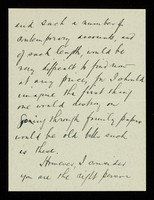 and such a number of
contemporary accounts, and
of such length, would be
very difficult to find now
at any price, for I should
imagine the first thing
one would destroy on
going through family papers
would be old bills such
as these.
However, I consider
you are the right person